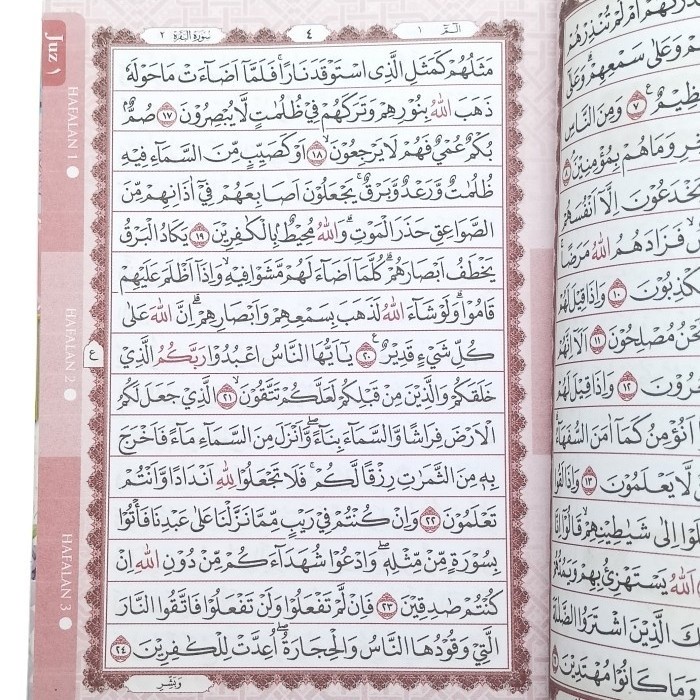 الۤمّۤ ١
٤
سُوْرَةُ الْبَقَرَةِ ٢
Juz ١
HAFALAN 1
HAFALAN 2
HAFALAN 3
ع
مَثَلُهُمْ كَمَثَلِ الَّذِى اسْتَوْقَدَ نَارًا ۚ فَلَمَّآ اَضَاۤءَتْ مَا حَوْلَهٗ
ذَهَبَ اللّٰهُ بِنُوْرِهِمْ وَتَرَكَهُمْ فِيْ ظُلُمٰتٍ لَّا يُبْصِرُوْنَ ١٧ صُمٌّ ۢ
بُكْمٌ عُمْيٌ فَهُمْ لَا يَرْجِعُوْنَ ۙ ١٨ اَوْ كَصَيِّبٍ مِّنَ السَّمَاۤءِ فِيْهِ
ظُلُمٰتٌ وَّرَعْدٌ وَّبَرْقٌ ۚ يَجْعَلُوْنَ اَصَابِعَهُمْ فِيْٓ اٰذَانِهِمْ مِّنَ
الصَّوَاعِقِ حَذَرَ الْمَوْتِ ۗ وَاللّٰهُ مُحِيْطٌ ۢ بِالْكٰفِرِيْنَ ١٩ يَكَادُ الْبَرْقُ
يَخْطَفُ اَبْصَارَهُمْ ۗ كُلَّمَآ اَضَاۤءَ لَهُمْ مَّشَوْا فِيْهِ ۙ وَاِذَآ اَظْلَمَ عَلَيْهِمْ
قَامُوْا ۗ وَلَوْ شَاۤءَ اللّٰهُ لَذَهَبَ بِسَمْعِهِمْ وَاَبْصَارِهِمْ ۗ اِنَّ اللّٰهَ عَلٰى
كُلِّ شَيْءٍ قَدِيْرٌ ࣖ ٢٠ يٰٓاَيُّهَا النَّاسُ اعْبُدُوْا رَبَّكُمُ الَّذِيْ
خَلَقَكُمْ وَالَّذِيْنَ مِنْ قَبْلِكُمْ لَعَلَّكُمْ تَتَّقُوْنَ ۙ ٢١ الَّذِيْ جَعَلَ لَكُمُ
الْاَرْضَ فِرَاشًا وَّالسَّمَاۤءَ بِنَاۤءً ۖ وَّاَنْزَلَ مِنَ السَّمَاۤءِ مَاۤءً فَاَخْرَجَ
بِهٖ مِنَ الثَّمَرٰتِ رِزْقًا لَّكُمْ ۚ فَلَا تَجْعَلُوْا لِلّٰهِ اَنْدَادًا وَّاَنْتُمْ
تَعْلَمُوْنَ ٢٢ وَاِنْ كُنْتُمْ فِيْ رَيْبٍ مِّمَّا نَزَّلْنَا عَلٰى عَبْدِنَا فَأْتُوْا
بِسُوْرَةٍ مِّنْ مِّثْلِهٖ ۖ وَادْعُوْا شُهَدَاۤءَكُمْ مِّنْ دُوْنِ اللّٰهِ اِنْ
كُنْتُمْ صٰدِقِيْنَ ٢٣ فَاِنْ لَّمْ تَفْعَلُوْا وَلَنْ تَفْعَلُوْا فَاتَّقُوا النَّارَ
الَّتِيْ وَقُوْدُهَا النَّاسُ وَالْحِجَارَةُ ۖ اُعِدَّتْ لِلْكٰفِرِيْنَ ٢٤
وَبَشِّرِ
اَمْ لَمْ تُنْذِرْهُمْ
وَعَلٰى سَمْعِهِمْ ۗ وَعَلٰٓى
٧ وَمِنَ النَّاسِ
وَمَا هُمْ بِمُؤْمِنِيْنَ ۘ ٨
اِلَّآ اَنْفُسَهُمْ
فَزَادَهُمُ اللّٰهُ مَرَضًا ۚ
١٠ وَاِذَا قِيْلَ لَهُمْ
مُصْلِحُوْنَ ١١ اَلَآ اِنَّهُمْ
١٢ وَاِذَا قِيْلَ لَهُمْ
اَنُؤْمِنُ كَمَآ اٰمَنَ السُّفَهَاۤءُ ۗ
لَّا يَعْلَمُوْنَ ١٣ وَاِذَا لَقُوا
اِلٰى شَيٰطِيْنِهِمْ ۙ قَالُوْٓا اِنَّا
اَللّٰهُ يَسْتَهْزِئُ بِهِمْ وَيَمُدُّهُمْ
الَّذِيْنَ اشْتَرَوُا الضَّلٰلَةَ
وَمَا كَانُوْا مُهْتَدِيْنَ ١٦